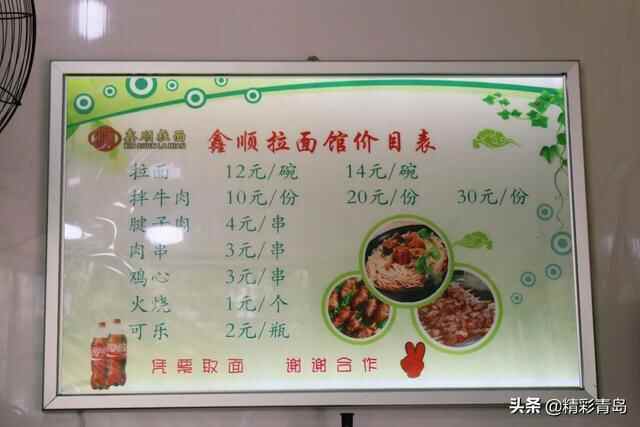 鑫顺拉面
XIN SHUN LA MIAN
鑫顺拉面馆价目表
拉面 12元/碗 14元/碗
拌牛肉 10元/份 20元/份 30元/份
腱子肉 4元/串
肉串 3元/串
鸡心 3元/串
火烧 1元/个
可乐 2元/瓶
凭票取面 谢谢合作
头条 @精彩青岛